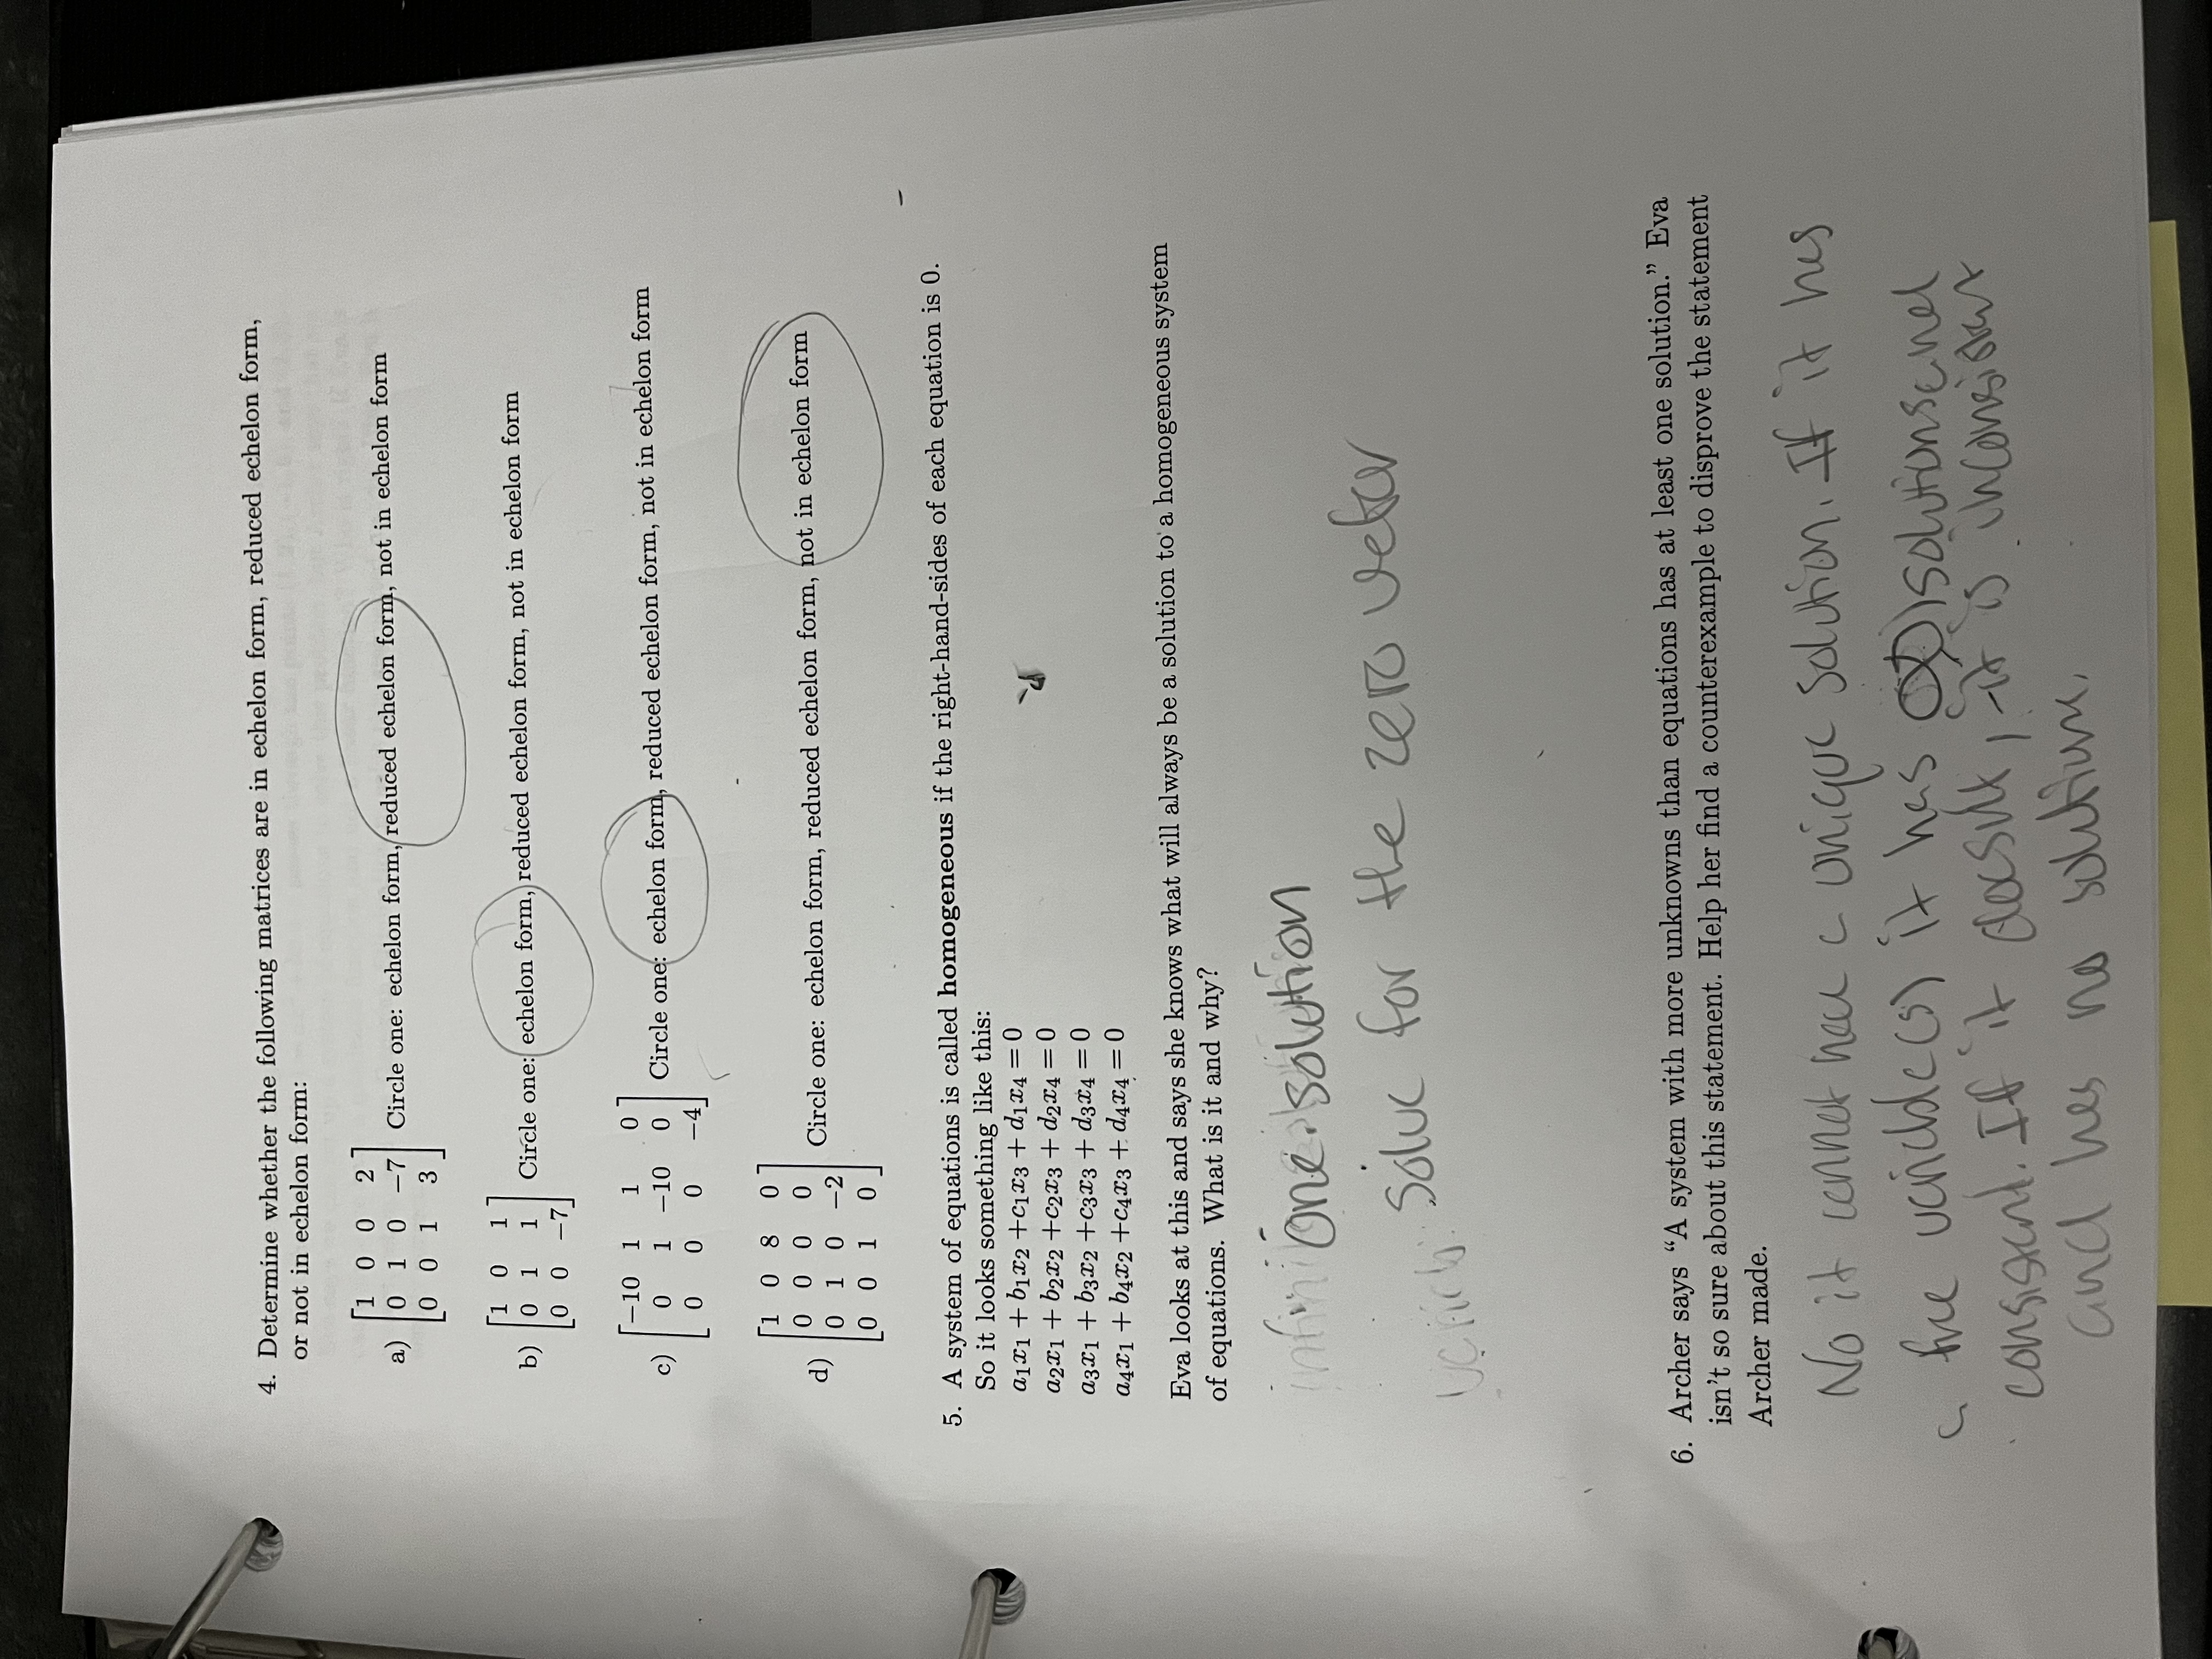 4. Determine whether the following matrices are in echelon form, reduced echelon form,
or not in echelon form:
a) [1 0 0 2
0 1 0 −7
0 0 1 3] Circle one: echelon form, reduced echelon form, not in echelon form
b) [1 0 1
0 1 1
0 0 −7] Circle one: echelon form, reduced echelon form, not in echelon form
c) [−10 1 1 0
0 1 −10 0
0 0 0 −4] Circle one: echelon form, reduced echelon form, not in echelon form
d) [1 0 8 0
0 0 0 0
0 1 0 −2
0 0 1 0] Circle one: echelon form, reduced echelon form, not in echelon form
5. A system of equations is called homogeneous if the right-hand-sides of each equation is 0.
So it looks something like this:
a₁x₁ + b₁x₂ +c₁x₃ + d₁x₄ = 0
a₂x₁ + b₂x₂ +c₂x₃ + d₂x₄ = 0
a₃x₁ + b₃x₂ +c₃x₃ + d₃x₄ = 0
a₄x₁ + b₄x₂ +c₄x₃ + d₄x₄ = 0
Eva looks at this and says she knows what will always be a solution to a homogeneous system
of equations. What is it and why?
One solution
solve for the zero vector
6. Archer says “A system with more unknowns than equations has at least one solution.” Eva
isn’t so sure about this statement. Help her find a counterexample to disprove the statement
Archer made.
No it cannot have a unique solution. If it has
a free variable(s) it has ∞ solutions and
consistent. If it doesn't, it is inconsistent
and has no solutions.